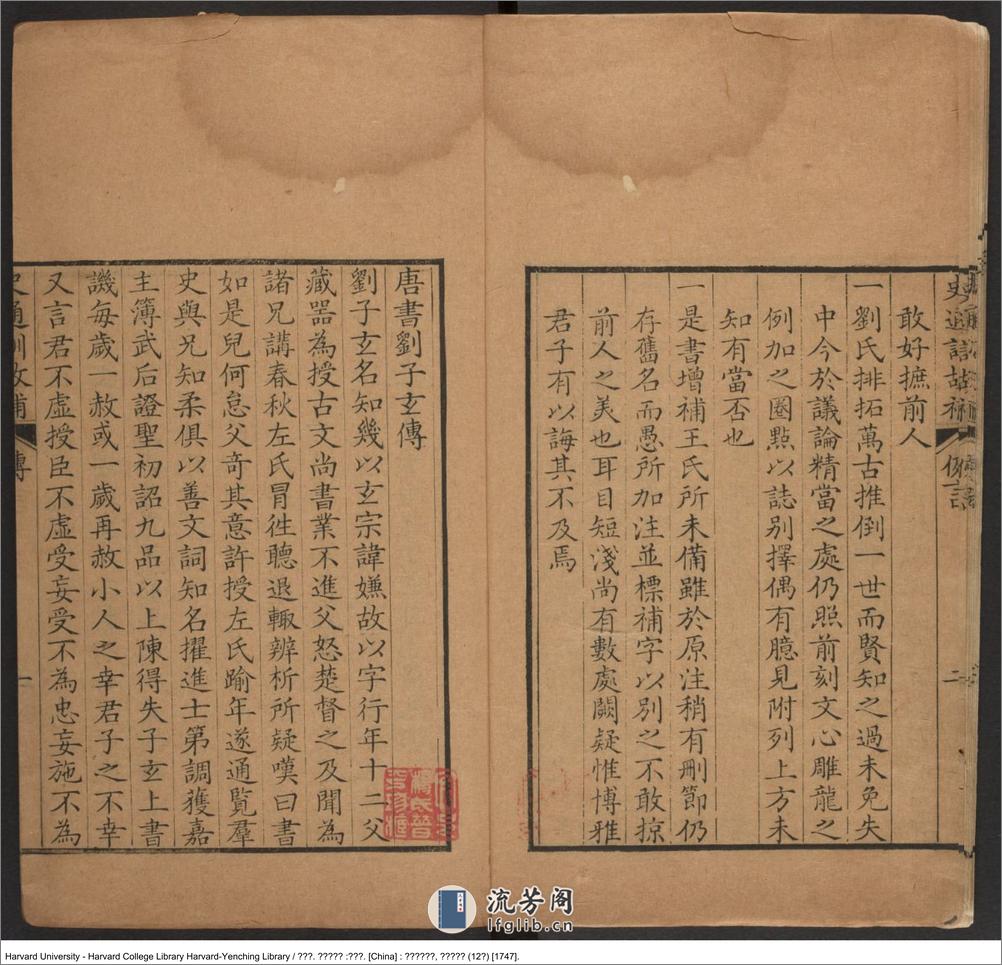 敢好摭前人
一劉氏排拓萬古推倒一世而賢知之過未免失
中今於議論精當之處仍照前刻文心雕龍之
例加之圈點以誌別擇偶有臆見附列上方未
知有當否也
一是書增補王氏所未備雖於原注稍有刪節仍
存舊名而愚所加注並標補字以別之不敢掠
前人之美也耳目短淺尚有數處闕疑惟博雅
君子有以誨其不及焉
例言
二
唐書劉子玄傳
劉子玄名知幾以玄宗諱嫌故以字行年十二父
藏器為授古文尚書業不進父怒楚督之及聞為
諸兄講春秋左氏冒徃聽退輙辨析所疑嘆曰書
如是兒何怠父奇其意許授左氏踰年遂通覽羣
史與兄知柔俱以善文詞知名擢進士第調獲嘉
主簿武后證聖初詔九品以上陳得失子玄上書
譏每歲一赦或一歲再赦小人之幸君子之不幸
又言君不虛授臣不虛受妄受不為忠妄施不為
傳
一
流芳阁
lfglib.cn
Harvard University - Harvard College Library Harvard-Yenching Library / ???. ????? :???. [China] : ??????, ????? (12?) [1747].